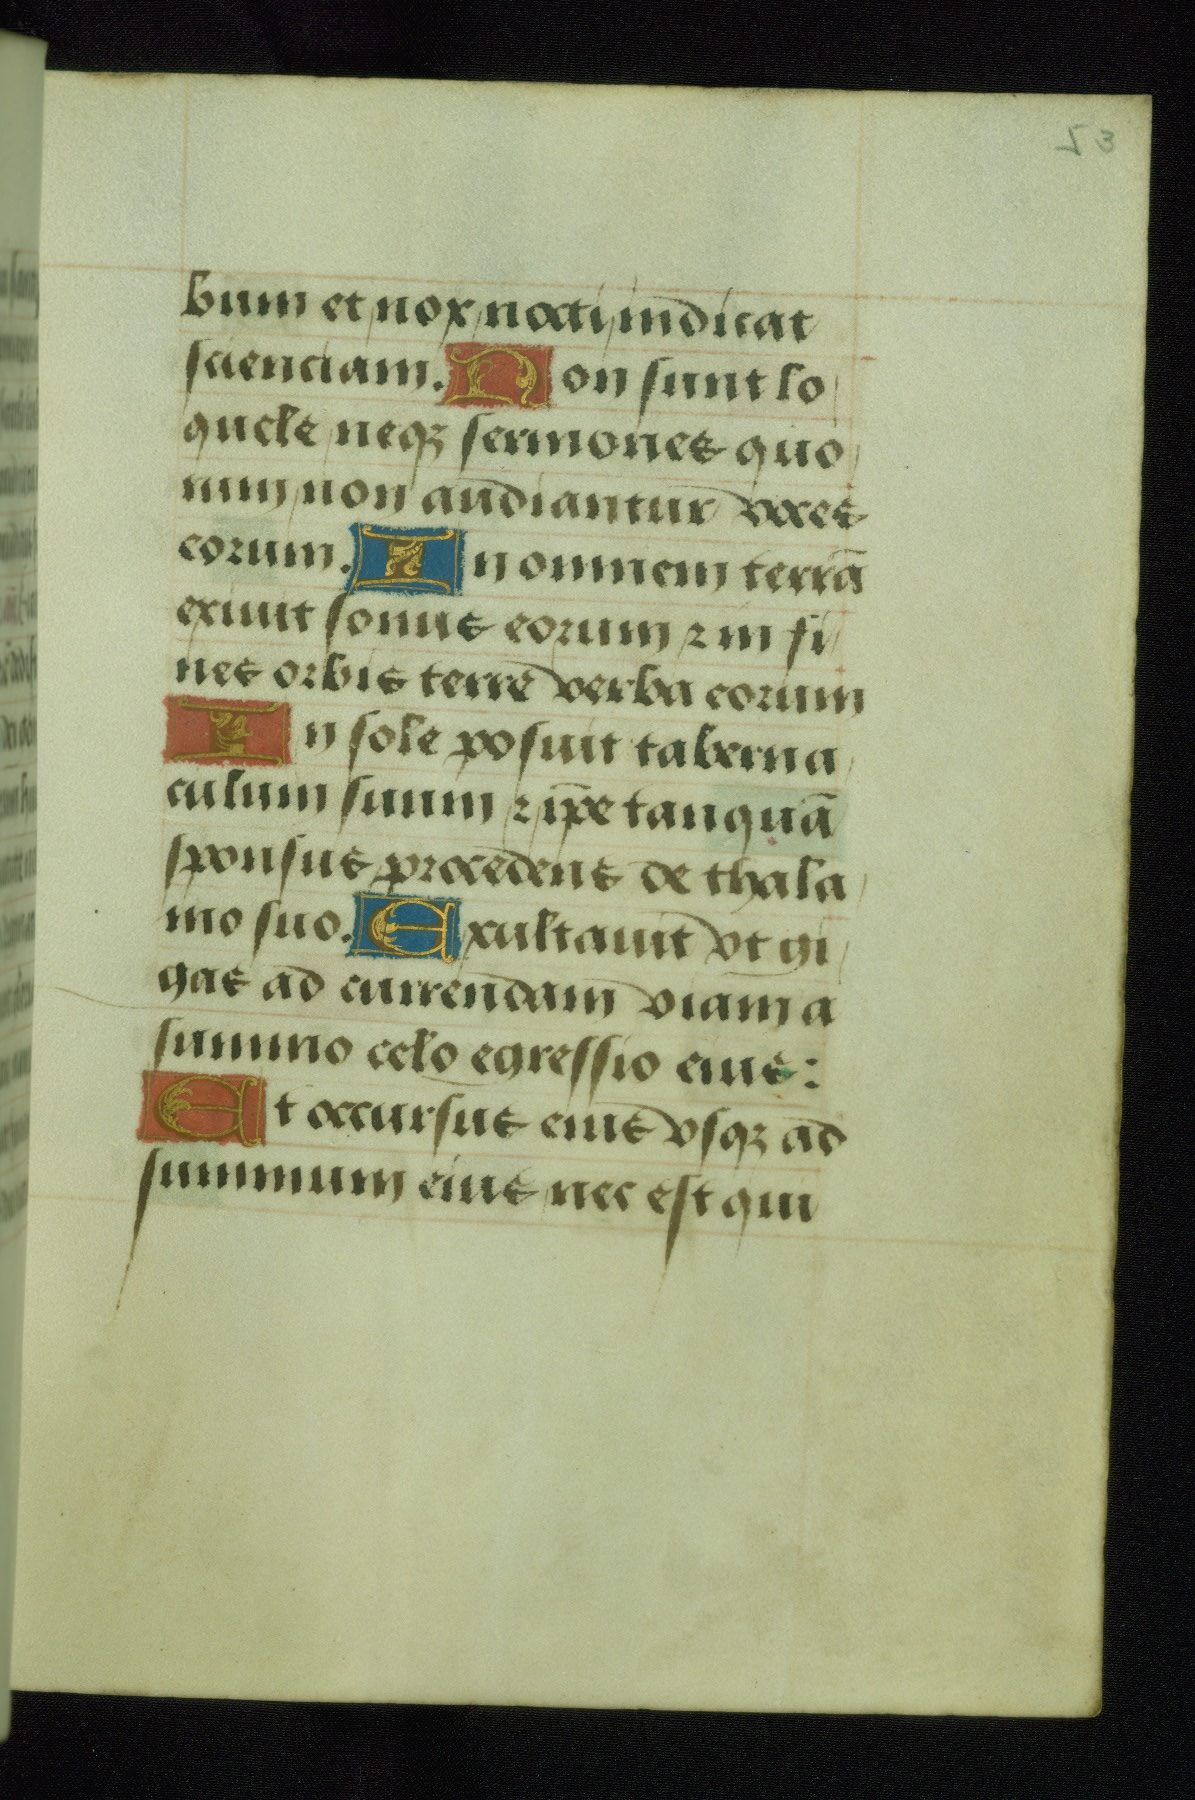 53
bum et nox nocti indicat
scienciam. Non sunt lo
quele neqꝫ sermones quo
rum non audiantur voces
eorum. In omnem terrã
exiuit sonus eorum ⁊ in fi
nes orbis terre verba eorum
In sole posuit taberna
culum suum ⁊ ip̃e tanquã
sponsus procedens de thala
mo suo. Exultauit vt gi
gas ad currendam viam a
summo celo egressio eius:
Et occursus eius vsqꝫ ad
summum eius nec est qui